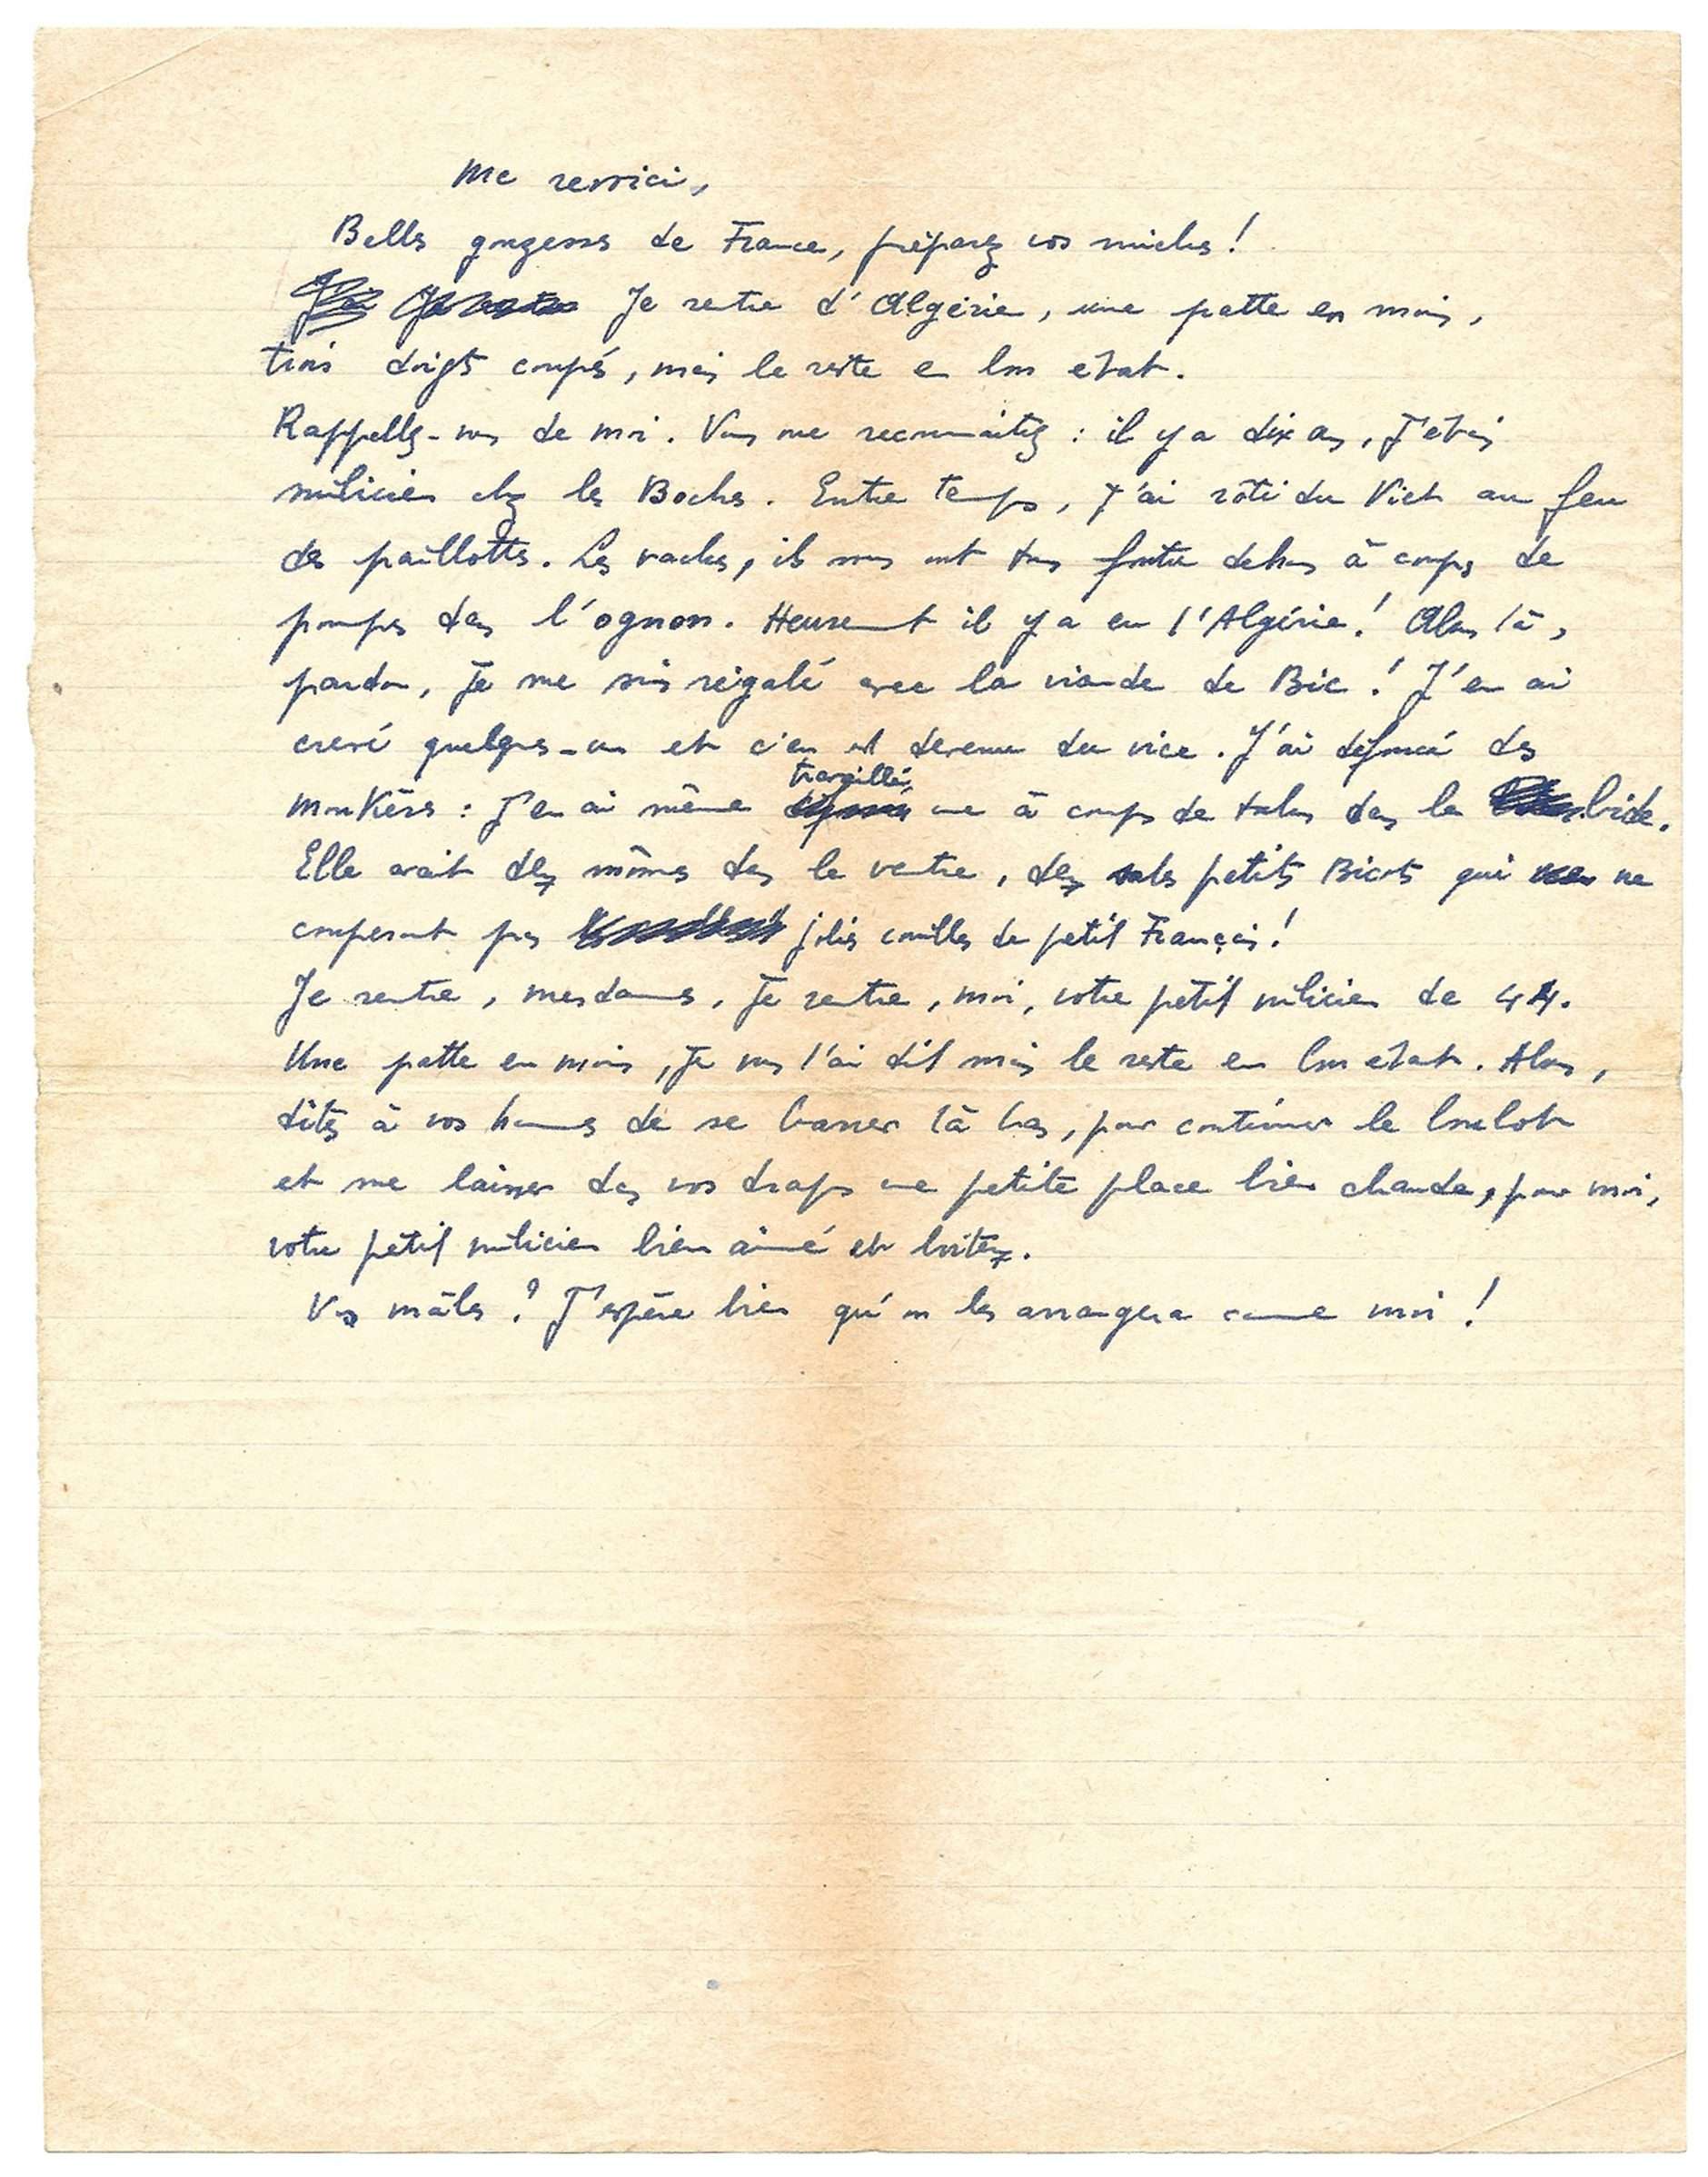 Me revoici,
Belles gonzesses de France, préparez vos miches !
Je rentre d'Algérie, une patte en moins,
trois doigts coupés, mais le reste en bon état.
Rappelez-vous de moi. Vous me reconnaîtez : il y a dix ans, j'étais
milicien chez les Boches. Entre temps, j'ai rôti du Viet au feu
des paillottes. Les vaches, ils nous ont tous foutu dehors à coups de
pompes dans l'ognon. Heureusement il y a eu l'Algérie ! Alors là,
pardon, je me suis régalé avec la viande de Bic ! J'en ai
crevé quelques-uns et c'en est devenu du vice. J'ai défoncé des
moukères : j'en ai même travaillé une à coups de talon dans le bide.
Elle avait des mômes dans le ventre, des sales petits Bicots qui ne
couperont pas jolies couilles de petit Français !
Je rentre, mesdames, je rentre, moi, votre petit milicien de 44.
Une patte en moins, je vous l'ai dit mais le reste en bon état. Alors,
dîtes à vos hommes de se barrer là bas, pour continuer le boulot
et me laisser dans vos draps une petite place bien chaude, pour moi,
votre petit milicien bien aimé et boiteux.
Vos mâles ? J'espère bien qu'on les arrangera comme moi !